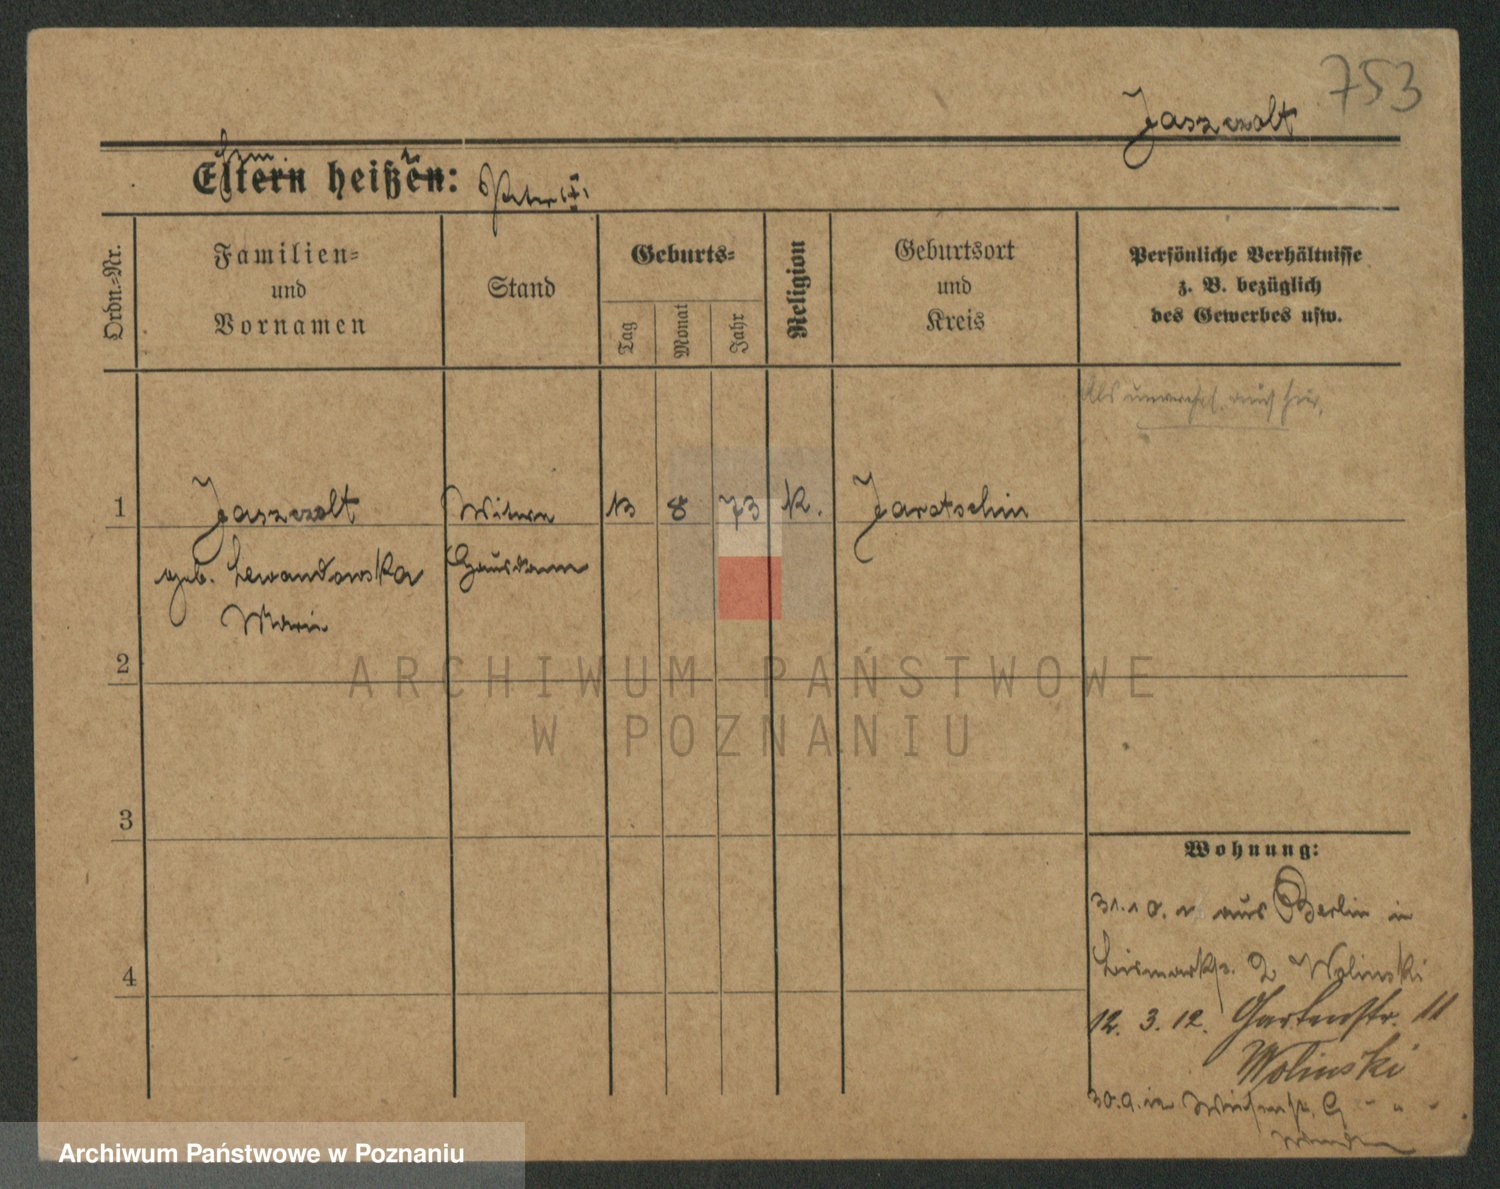 753
Jaszczolt
Eltern heißen:
Ordn.=Nr.
Familien=
und
Vornamen
Stand
Geburts=
Tag
Monat
Jahr
Religion
Geburtsort
und
Kreis
Persönliche Verhältnisse
z. B. bezüglich
des Gewerbes usw.
Als
1 Jaszczolt Witwe 13 8 73 K. Jarotschin
geb. Lewandowska Hausdame
Marie
2
3
4
ARCHIWUM PAŃSTWOWE
W POZNANIU
Wohnung:
31.10. aus Berlin in
Bismarkstr. 2 Wolinski
12. 3. 12. Gartenstr. 11
Wolinski
30.9.12
Archiwum Państwowe w Poznaniu